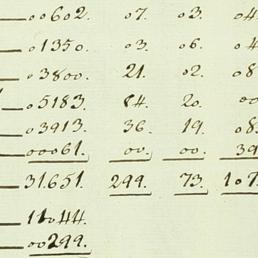 00602. 07. 03. 04
01350. 03. 06. 04
03800. 21. 02. 08
05183. 84. 20. 00
03913. 36. 19. 08
00061. 00. 00. 39
31.651. 299. 73. 107
11044.
00299.